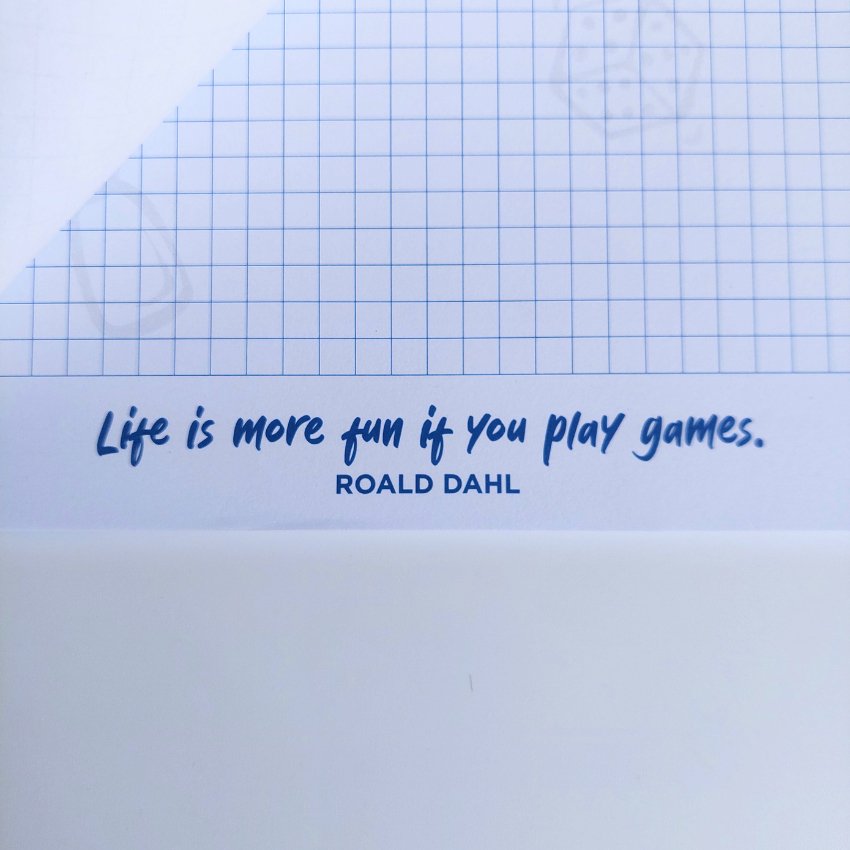 Life is more fun if you play games.
ROALD DAHL